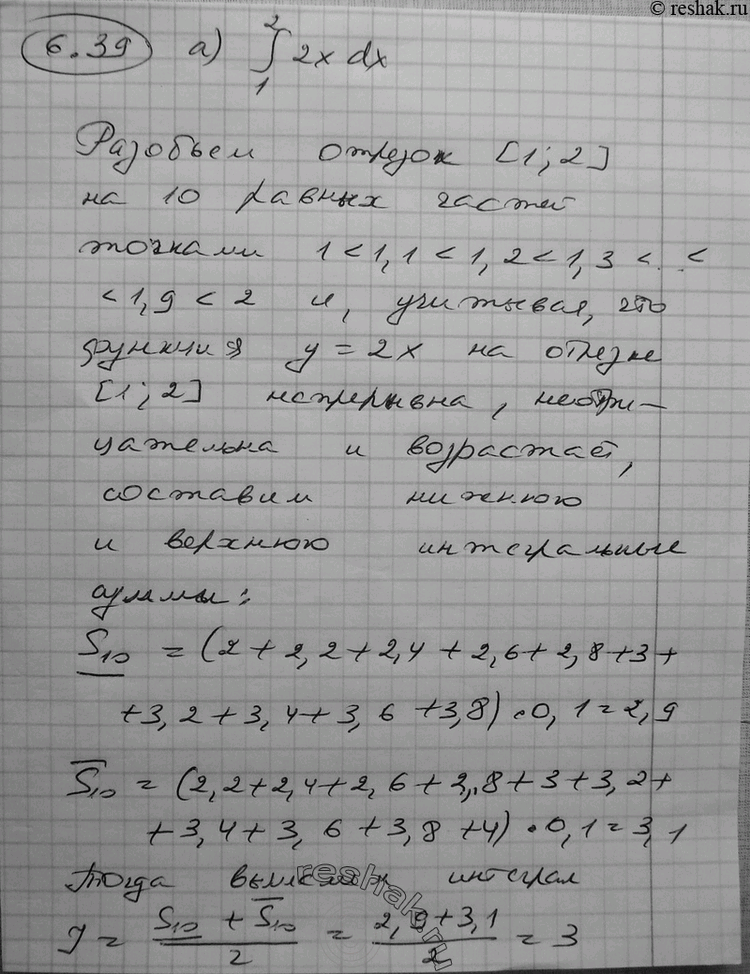 © reshak.ru
6.39 а) ∫₁² 2x dx
Разобьем отрезок [1; 2]
на 10 равных частей
точками 1 < 1,1 < 1,2 < 1,3 < .. <
< 1,9 < 2 и, учитывая, что
функция y = 2x на отрезке
[1; 2] непрерывна, неотри-
цательна и возрастает,
составим нижнюю
и верхнюю интегральные
суммы:
S₁₀ = (2 + 2,2 + 2,4 + 2,6 + 2,8 + 3 +
+ 3,2 + 3,4 + 3,6 + 3,8) · 0,1 = 2,9
S̅₁₀ = (2,2 + 2,4 + 2,6 + 2,8 + 3 + 3,2 +
+ 3,4 + 3,6 + 3,8 + 4) · 0,1 = 3,1
Тогда интеграл
J = (S₁₀ + S̅₁₀)/2 = (2,9 + 3,1)/2 = 3
reshak.ru